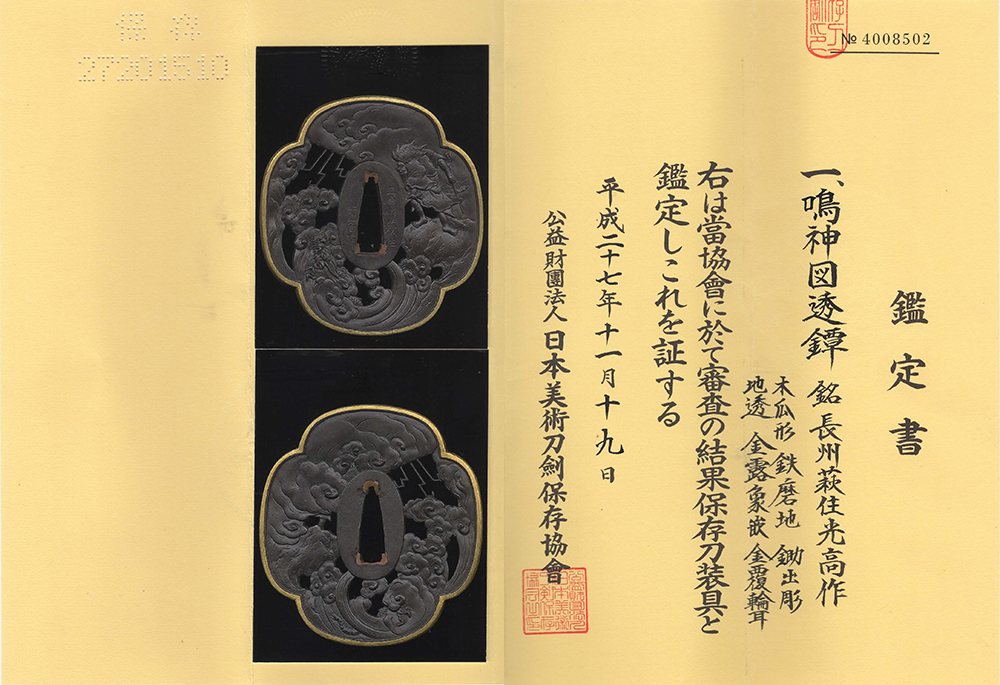 № 4008502
鑑定書
一、鳴神図透鐔 銘 長州萩住光高作
木瓜形 鉄磨地 鋤出彫
地透 金露象嵌 金覆輪耳
右は當協會に於て審査の結果保存刀装具と
鑑定しこれを証する
平成二十七年十一月十九日
公益財團法人 日本美術刀劍保存協會
保存
27201510